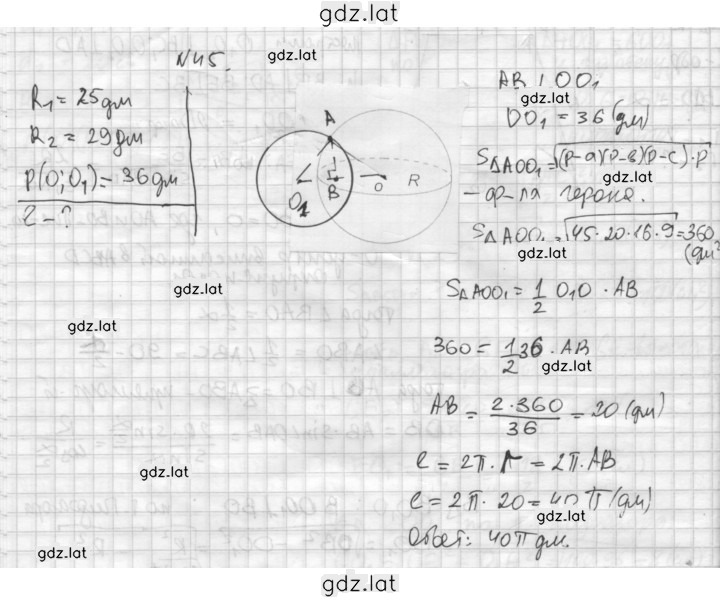 gdz.lat
N45.
gdz.lat
R₁ = 25 дм
R₂ = 29 дм
ρ(O; O₁) = 36 дм
ℓ - ?
A
O₁
B
O
R
AB ⊥ OO₁
gdz.lat
OO₁ = 36 (дм)
S△AOO₁ = √(p-a)(p-b)(p-c)·p
gdz.lat
- ф-ла герона.
S△AOO₁ = √45·20·16·9 = 360
(дм²
gdz.lat
S△AOO₁ = 1/2 O₁O · AB
gdz.lat
360 = 1/2 36 · AB
gdz.lat
gdz.lat
AB = 2·360/36 = 20 (дм)
gdz.lat
ℓ = 2π · r = 2π · AB
gdz.lat
ℓ = 2π · 20 = 40π (дм)
gdz.lat
Ответ: 40π дм.
gdz.lat
gdz.lat